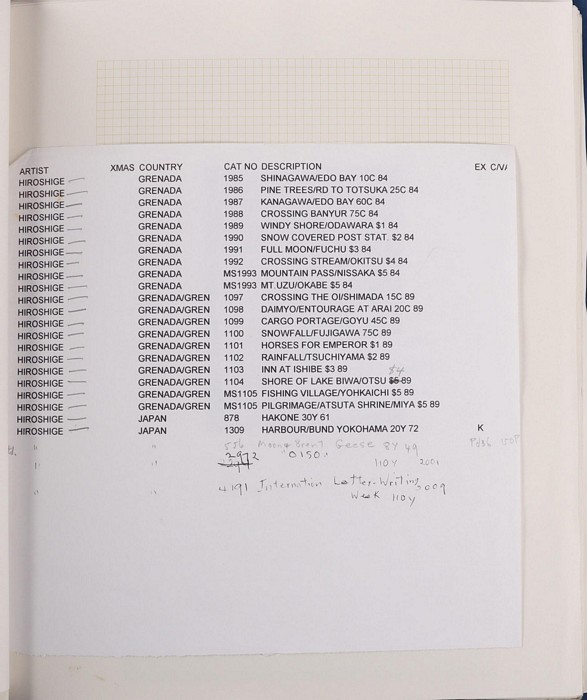 ARTIST XMAS COUNTRY CAT NO DESCRIPTION EX C/V/
HIROSHIGE GRENADA 1985 SHINAGAWA/EDO BAY 10C 84
HIROSHIGE GRENADA 1986 PINE TREES/RD TO TOTSUKA 25C 84
HIROSHIGE GRENADA 1987 KANAGAWA/EDO BAY 60C 84
HIROSHIGE GRENADA 1988 CROSSING BANYUR 75C 84
HIROSHIGE GRENADA 1989 WINDY SHORE/ODAWARA $1 84
HIROSHIGE GRENADA 1990 SNOW COVERED POST STAT. $2 84
HIROSHIGE GRENADA 1991 FULL MOON/FUCHU $3 84
HIROSHIGE GRENADA 1992 CROSSING STREAM/OKITSU $4 84
HIROSHIGE GRENADA MS1993 MOUNTAIN PASS/NISSAKA $5 84
HIROSHIGE GRENADA MS1993 MT.UZU/OKABE $5 84
HIROSHIGE GRENADA/GREN 1097 CROSSING THE OI/SHIMADA 15C 89
HIROSHIGE GRENADA/GREN 1098 DAIMYO/ENTOURAGE AT ARAI 20C 89
HIROSHIGE GRENADA/GREN 1099 CARGO PORTAGE/GOYU 45C 89
HIROSHIGE GRENADA/GREN 1100 SNOWFALL/FUJIGAWA 75C 89
HIROSHIGE GRENADA/GREN 1101 HORSES FOR EMPEROR $1 89
HIROSHIGE GRENADA/GREN 1102 RAINFALL/TSUCHIYAMA $2 89
HIROSHIGE GRENADA/GREN 1103 INN AT ISHIBE $3 89
$4
HIROSHIGE GRENADA/GREN 1104 SHORE OF LAKE BIWA/OTSU $5 89
HIROSHIGE GRENADA/GREN MS1105 FISHING VILLAGE/YOHKAICHI $5 89
HIROSHIGE GRENADA/GREN MS1105 PILGRIMAGE/ATSUTA SHRINE/MIYA $5 89
HIROSHIGE JAPAN 878 HAKONE 10Y 61
HIROSHIGE JAPAN 1309 HARBOUR/BUND YOKOHAMA 20Y 72 K
" " 556 Moon & Brent Geese 8Y 49
" " 2972 110Y 2001
" " 4191 Internation Letter-Writing 2009
Week 110Y